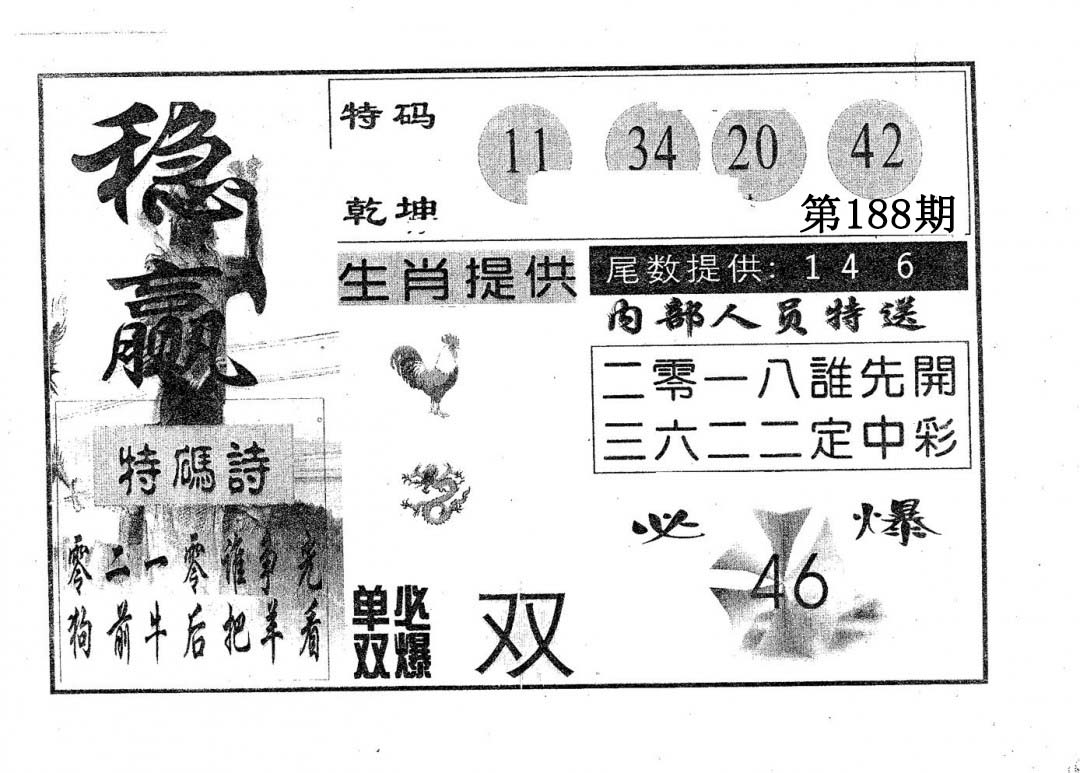 稳赢
特码
乾坤
11 34 20 42
第188期
生肖提供
尾数提供：1 4 6
内部人员特送
二零一八誰先開
三六二二定中彩
特碼詩
零二一零谁争先
狗前牛后把羊看
单双必爆
双
必爆
46